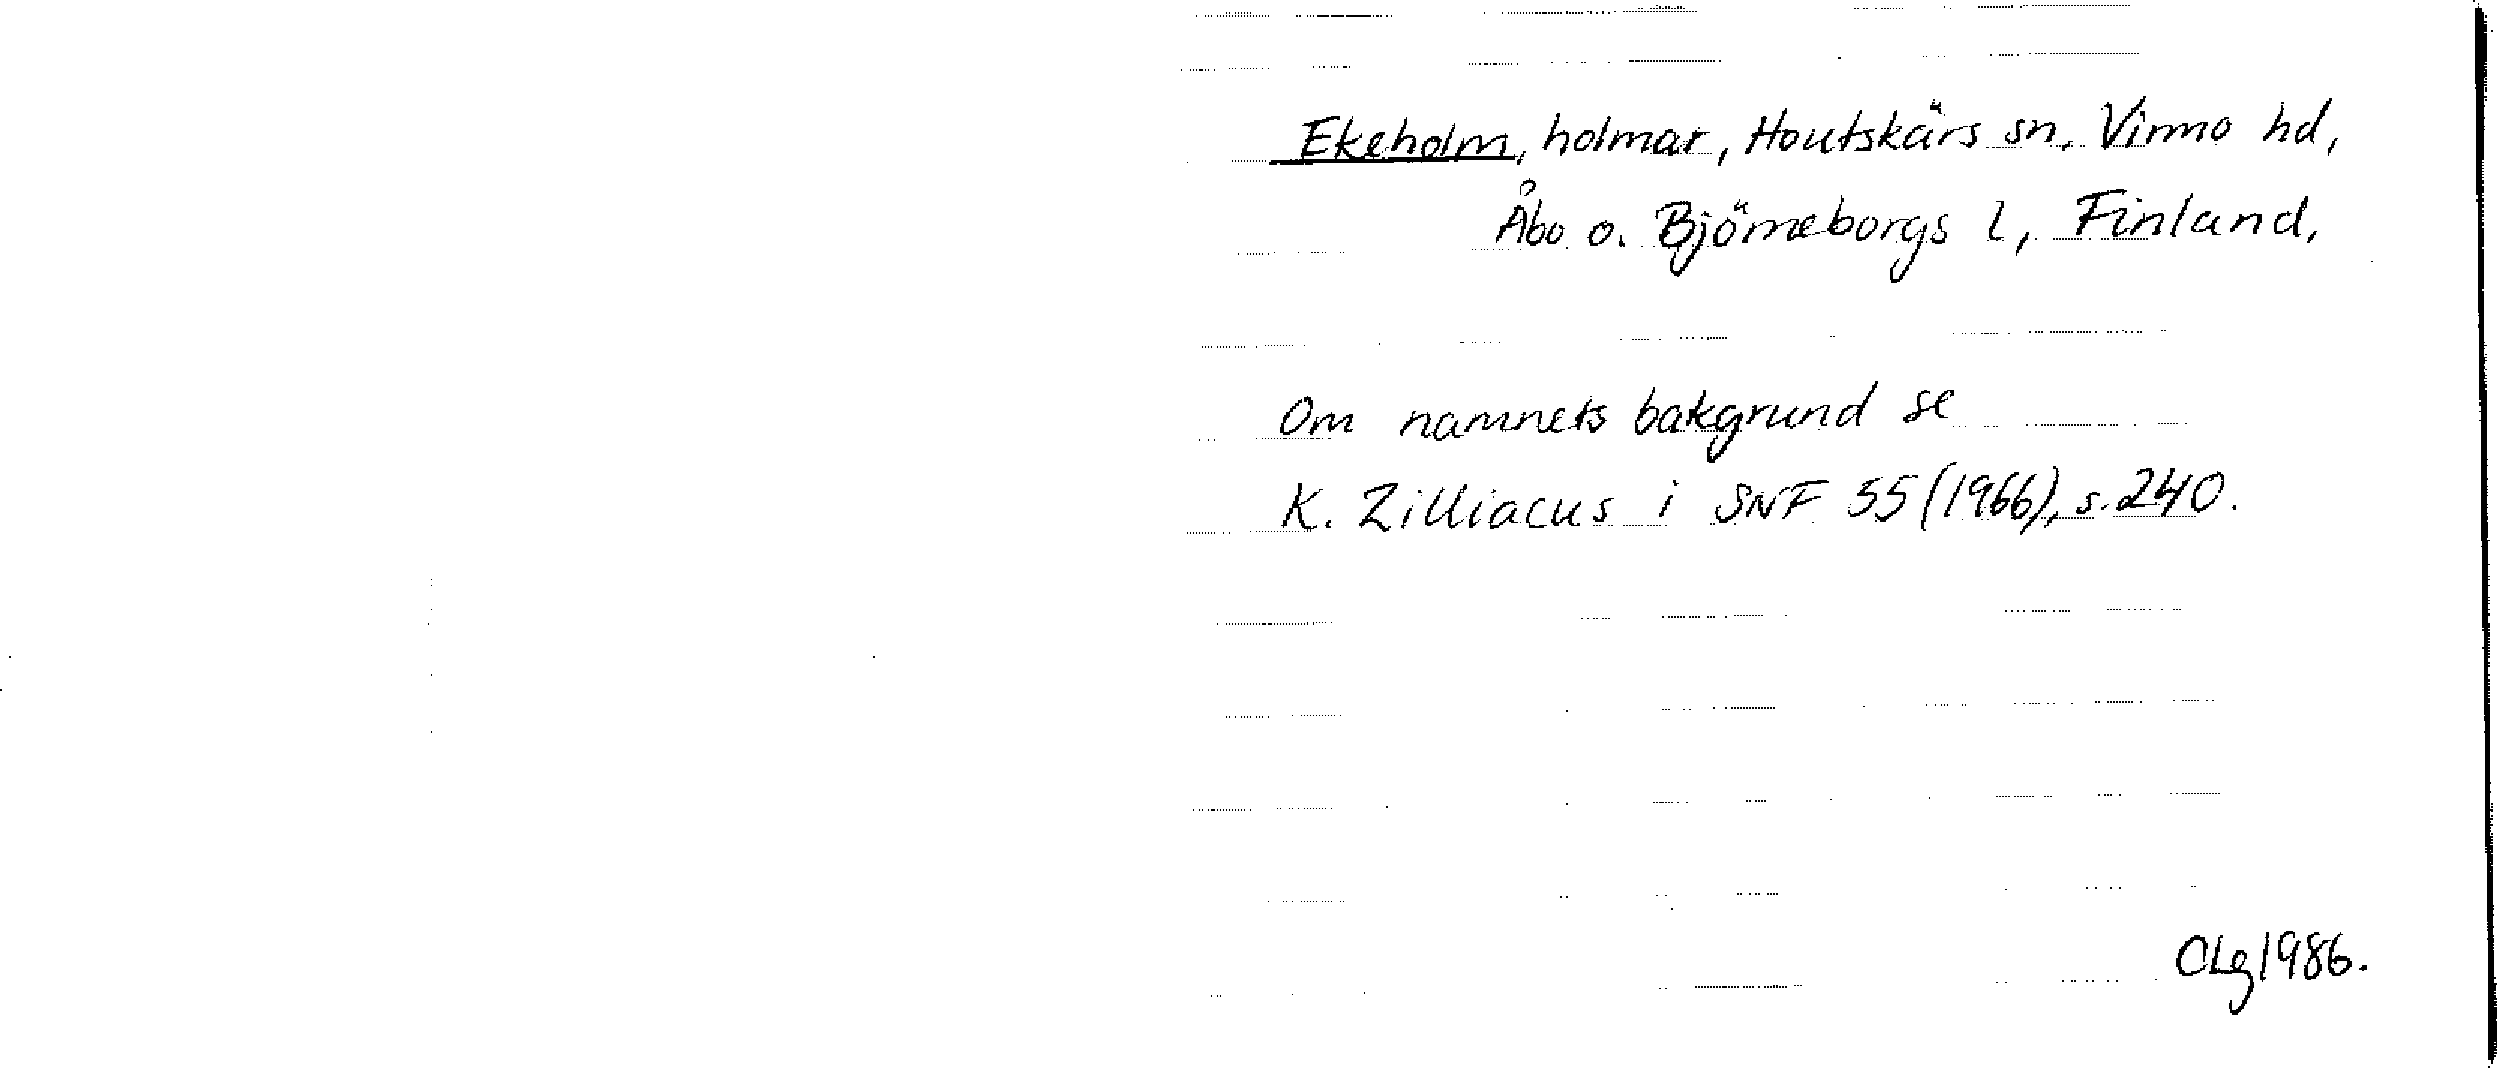 Ekeholm, holmar, Houtskärs sn, Virmo hd,
Åbo o. Björneborgs l, Finland,
Om namnets bakgrund se
K. Zilliacus i SNF 55 (1966), s. 240.
OLg 1986.